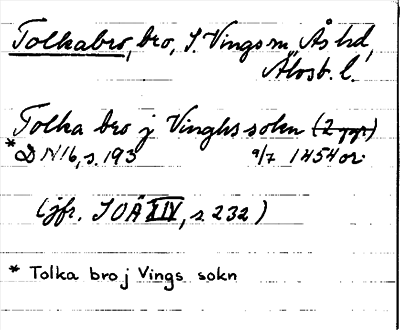 Tolkabro, bro, S. Vings sn, Ås hd,
Älvsb. l.
Tolka bro j Vinghs sokn (2 ggr)
*DN 16, s. 193 9/7 1454 or.
(jfr. SOÄ XIV, s 232)
* Tolka bro j Vings sokn